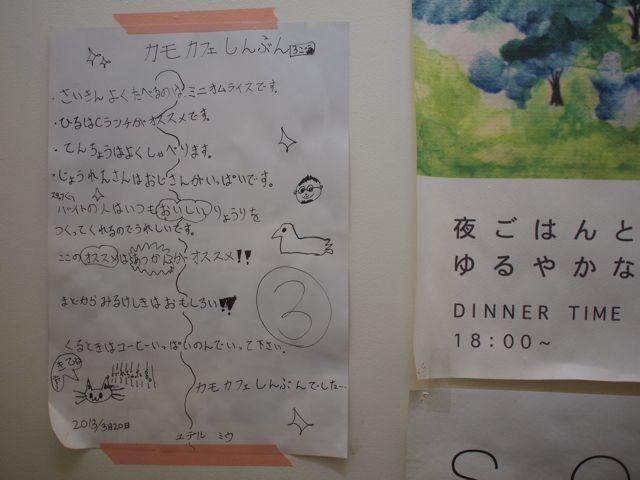 カモカフェしんぶん
・さいきんよくたべるのは、ミニオムライスです。
・ひるはCランチがオススメです。
・てんちょうはよくしゃべります。
・じょうれんさんはおじさんがいっぱいです。
バイトの人はいつもおいしいりょうりを
つくってくれるのでうれしいです。
ここのオススメはあつかんがオススメ!!
まどからみるけしきはおもしろい!!
3
くるときはコーヒーいっぱいのんでいって下さい.
カモカフェしんぶんでした…
2013/3月20日
ユテル ミウ
夜ごはんと
ゆるやかな
DINNER TIME
18:00~